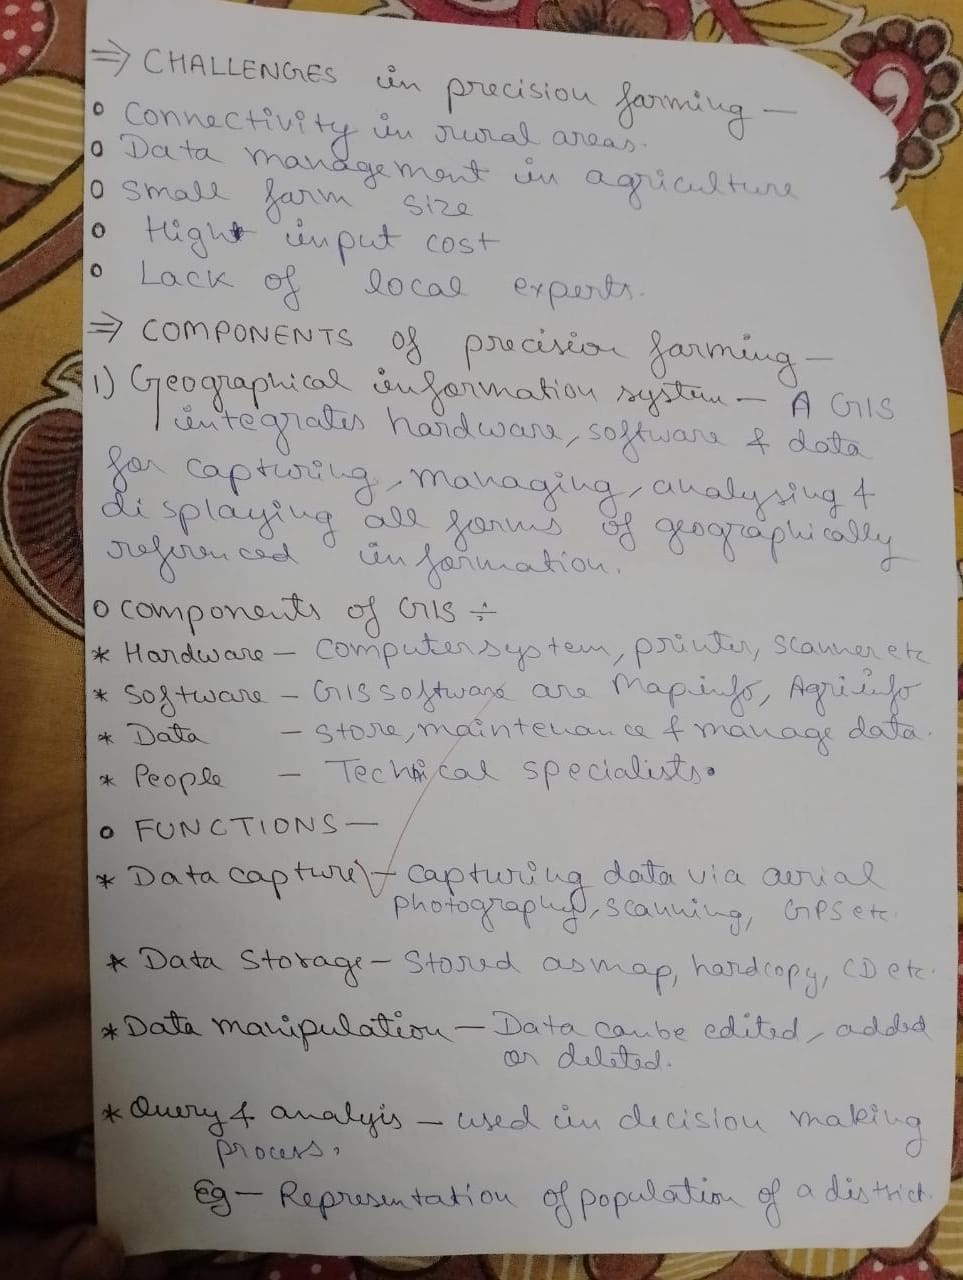 ⇒ CHALLENGES in precision farming —
o Connectivity in rural areas.
o Data management in agriculture
o Small farm size
o High input cost
o Lack of local experts.
⇒ COMPONENTS of precision farming —
1) Geographical information system — A GIS
integrates hardware, software & data
for capturing, managing, analysing &
displaying all forms of geographically
referenced information.
o Components of GIS ÷
* Hardware — Computer system, printer, scanner etc
* Software — GIS software are Mapinfo, Agriinfo
* Data — Store, maintenance & manage data.
* People — Technical specialists.
o FUNCTIONS —
* Data capture — capturing data via aerial
photography, scanning, GPS etc.
* Data Storage — Stored as map, hardcopy, CD etc.
* Data manipulation — Data can be edited, added
or deleted.
* Query & analyis — used in decision making
process.
Eg — Representation of population of a district.